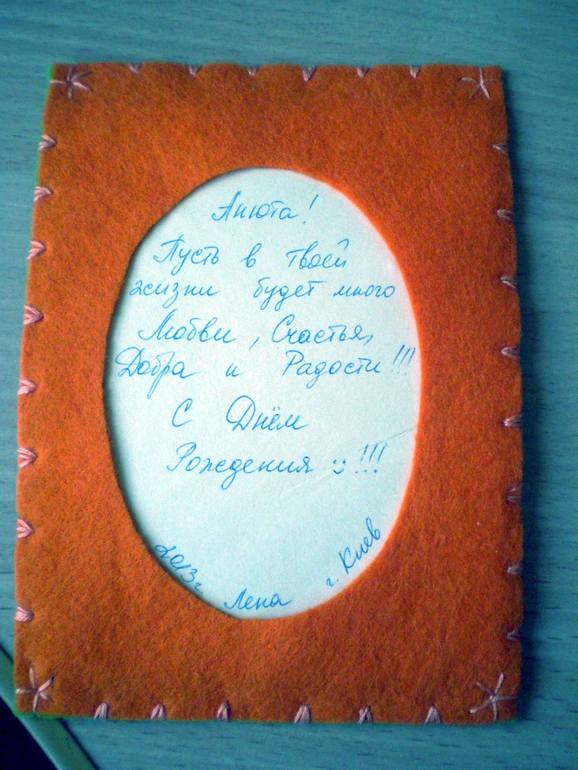 Анюта!
Пусть в твоей
жизни будет много
Любви, Счастья,
Добра и Радости!!!
С Днём
Рождения :)!!!
2013г. Лена г. Киев